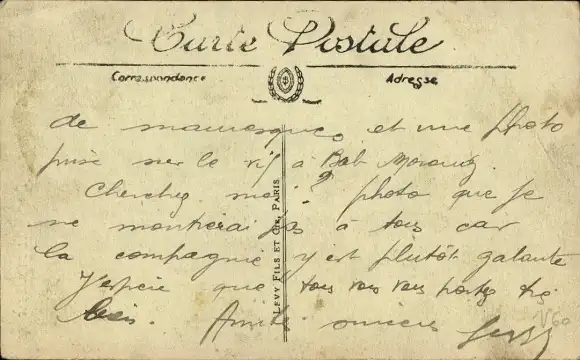 Carte Postale
Correspondance
Adresse
de mauresque, et une photo
prise sur le vif à Bab
Cherchez moi photo que je
ne montrerai pas à tous car
la compagnie y est plutôt galante
J'espère que tous vous vous portez très
bien. Amitiés sincères
LEVY FILS ET CIE, PARIS